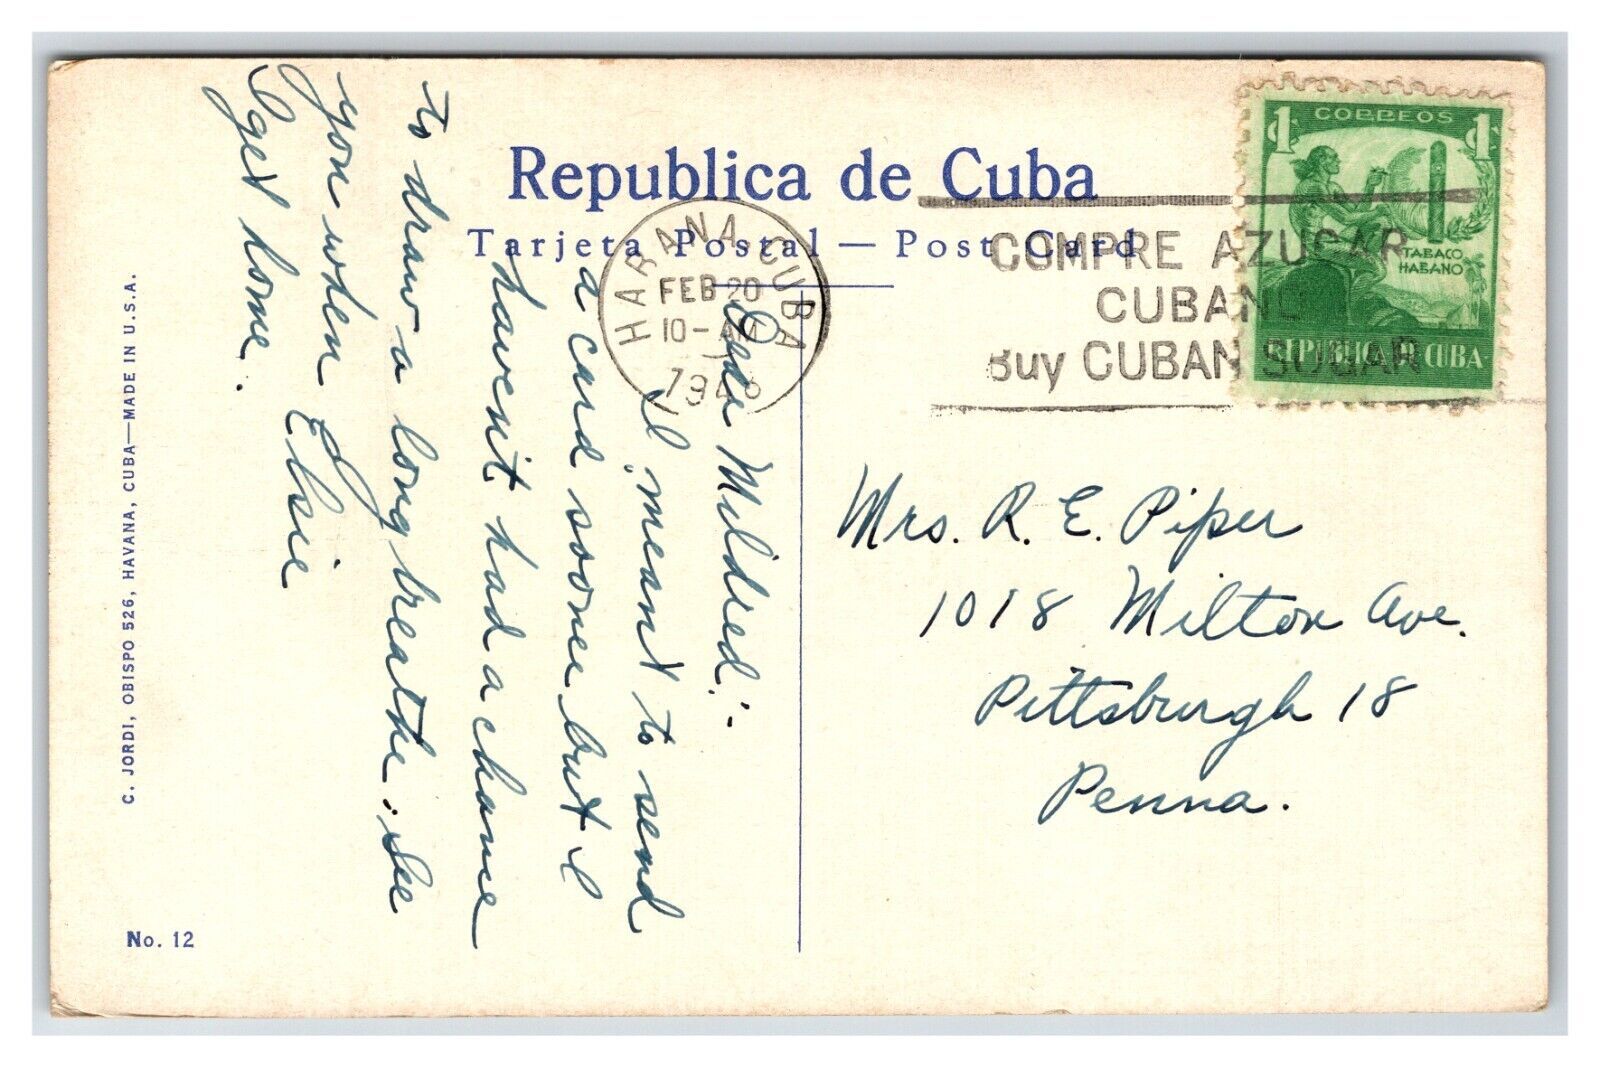 Republica de Cuba
Tarjeta Postal — Post Card
HABANA, CUBA
FEB 20
10-AM
COMPRE AZUCAR
CUBANO
Buy CUBAN SUGAR
1 CORREOS 1
TABACO
HABANO
REPUBLICA DE CUBA
Dear Mildred:-
I meant to send
a card sooner but I
havent had a chance
to draw a long breathe. See
you when
I get home.
Elsie
Mrs. R. E. Piper
1018 Milton Ave.
Pittsburgh 18
Penna.
C. JORDI, OBISPO 526, HAVANA, CUBA—MADE IN U.S.A.
No. 12